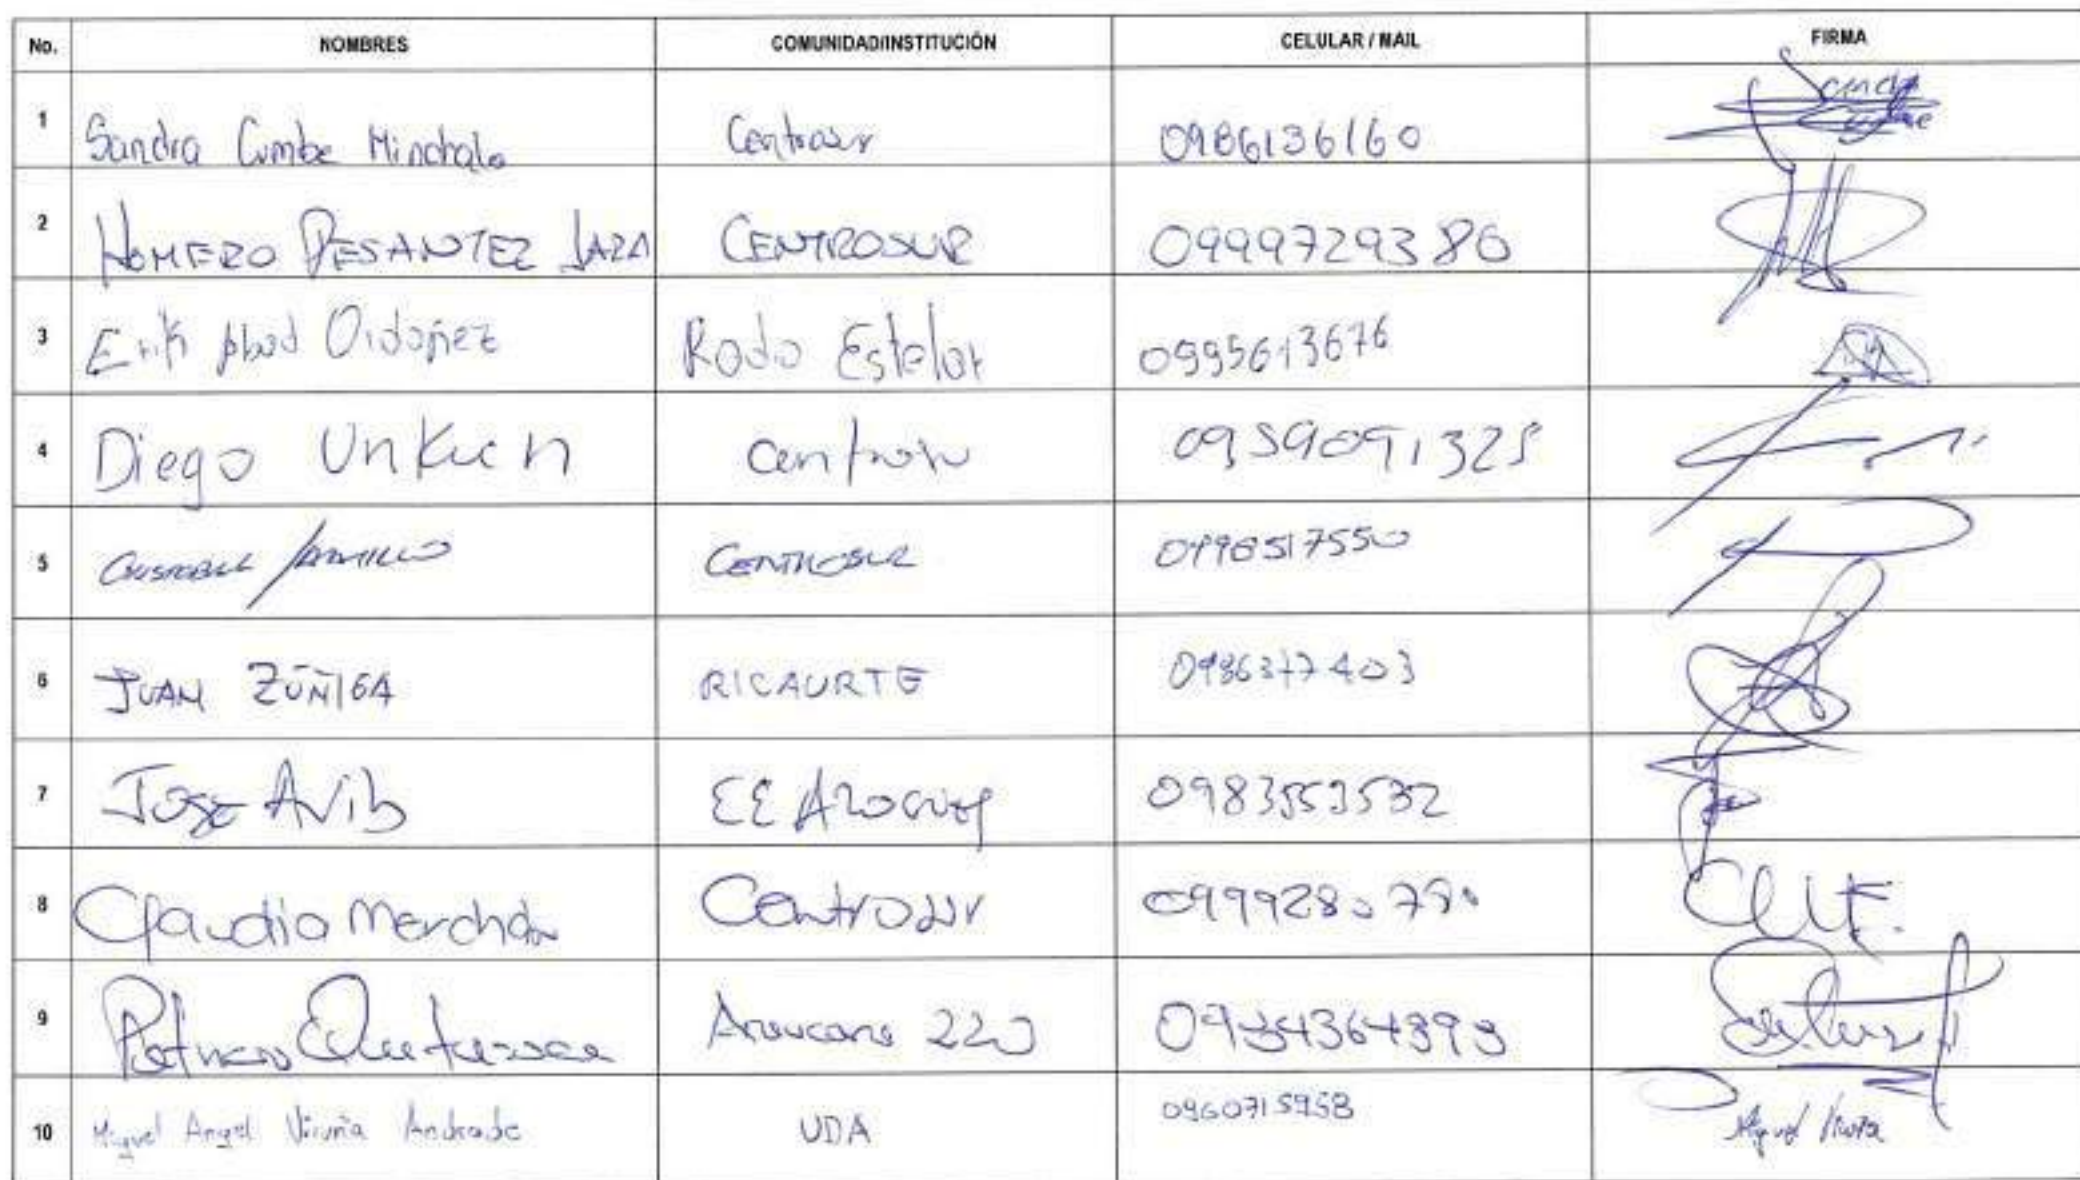 No. NOMBRES COMUNIDAD/INSTITUCIÓN CELULAR / MAIL FIRMA
1 Sandra Cumbe Minchala Centrosur 0986136160
2 HOMERO PESANTEZ JARA CENTROSUR 0999729386
3 Erik Abad Ordoñez Radio Estelar 0995613676
4 Diego Unkuch Centrosur 0959091325
5 CRISTOBAL JARAMILLO CENTROSUR 0998517550
6 JUAN ZÚÑIGA RICAURTE 0986377403
7 Jose Avila EE Azogues 0983553532
8 Claudia Merchán Centrosur
9 Patricio Araucana 220
10 Miguel Angel Vicuña Andrade UDA 0960715958